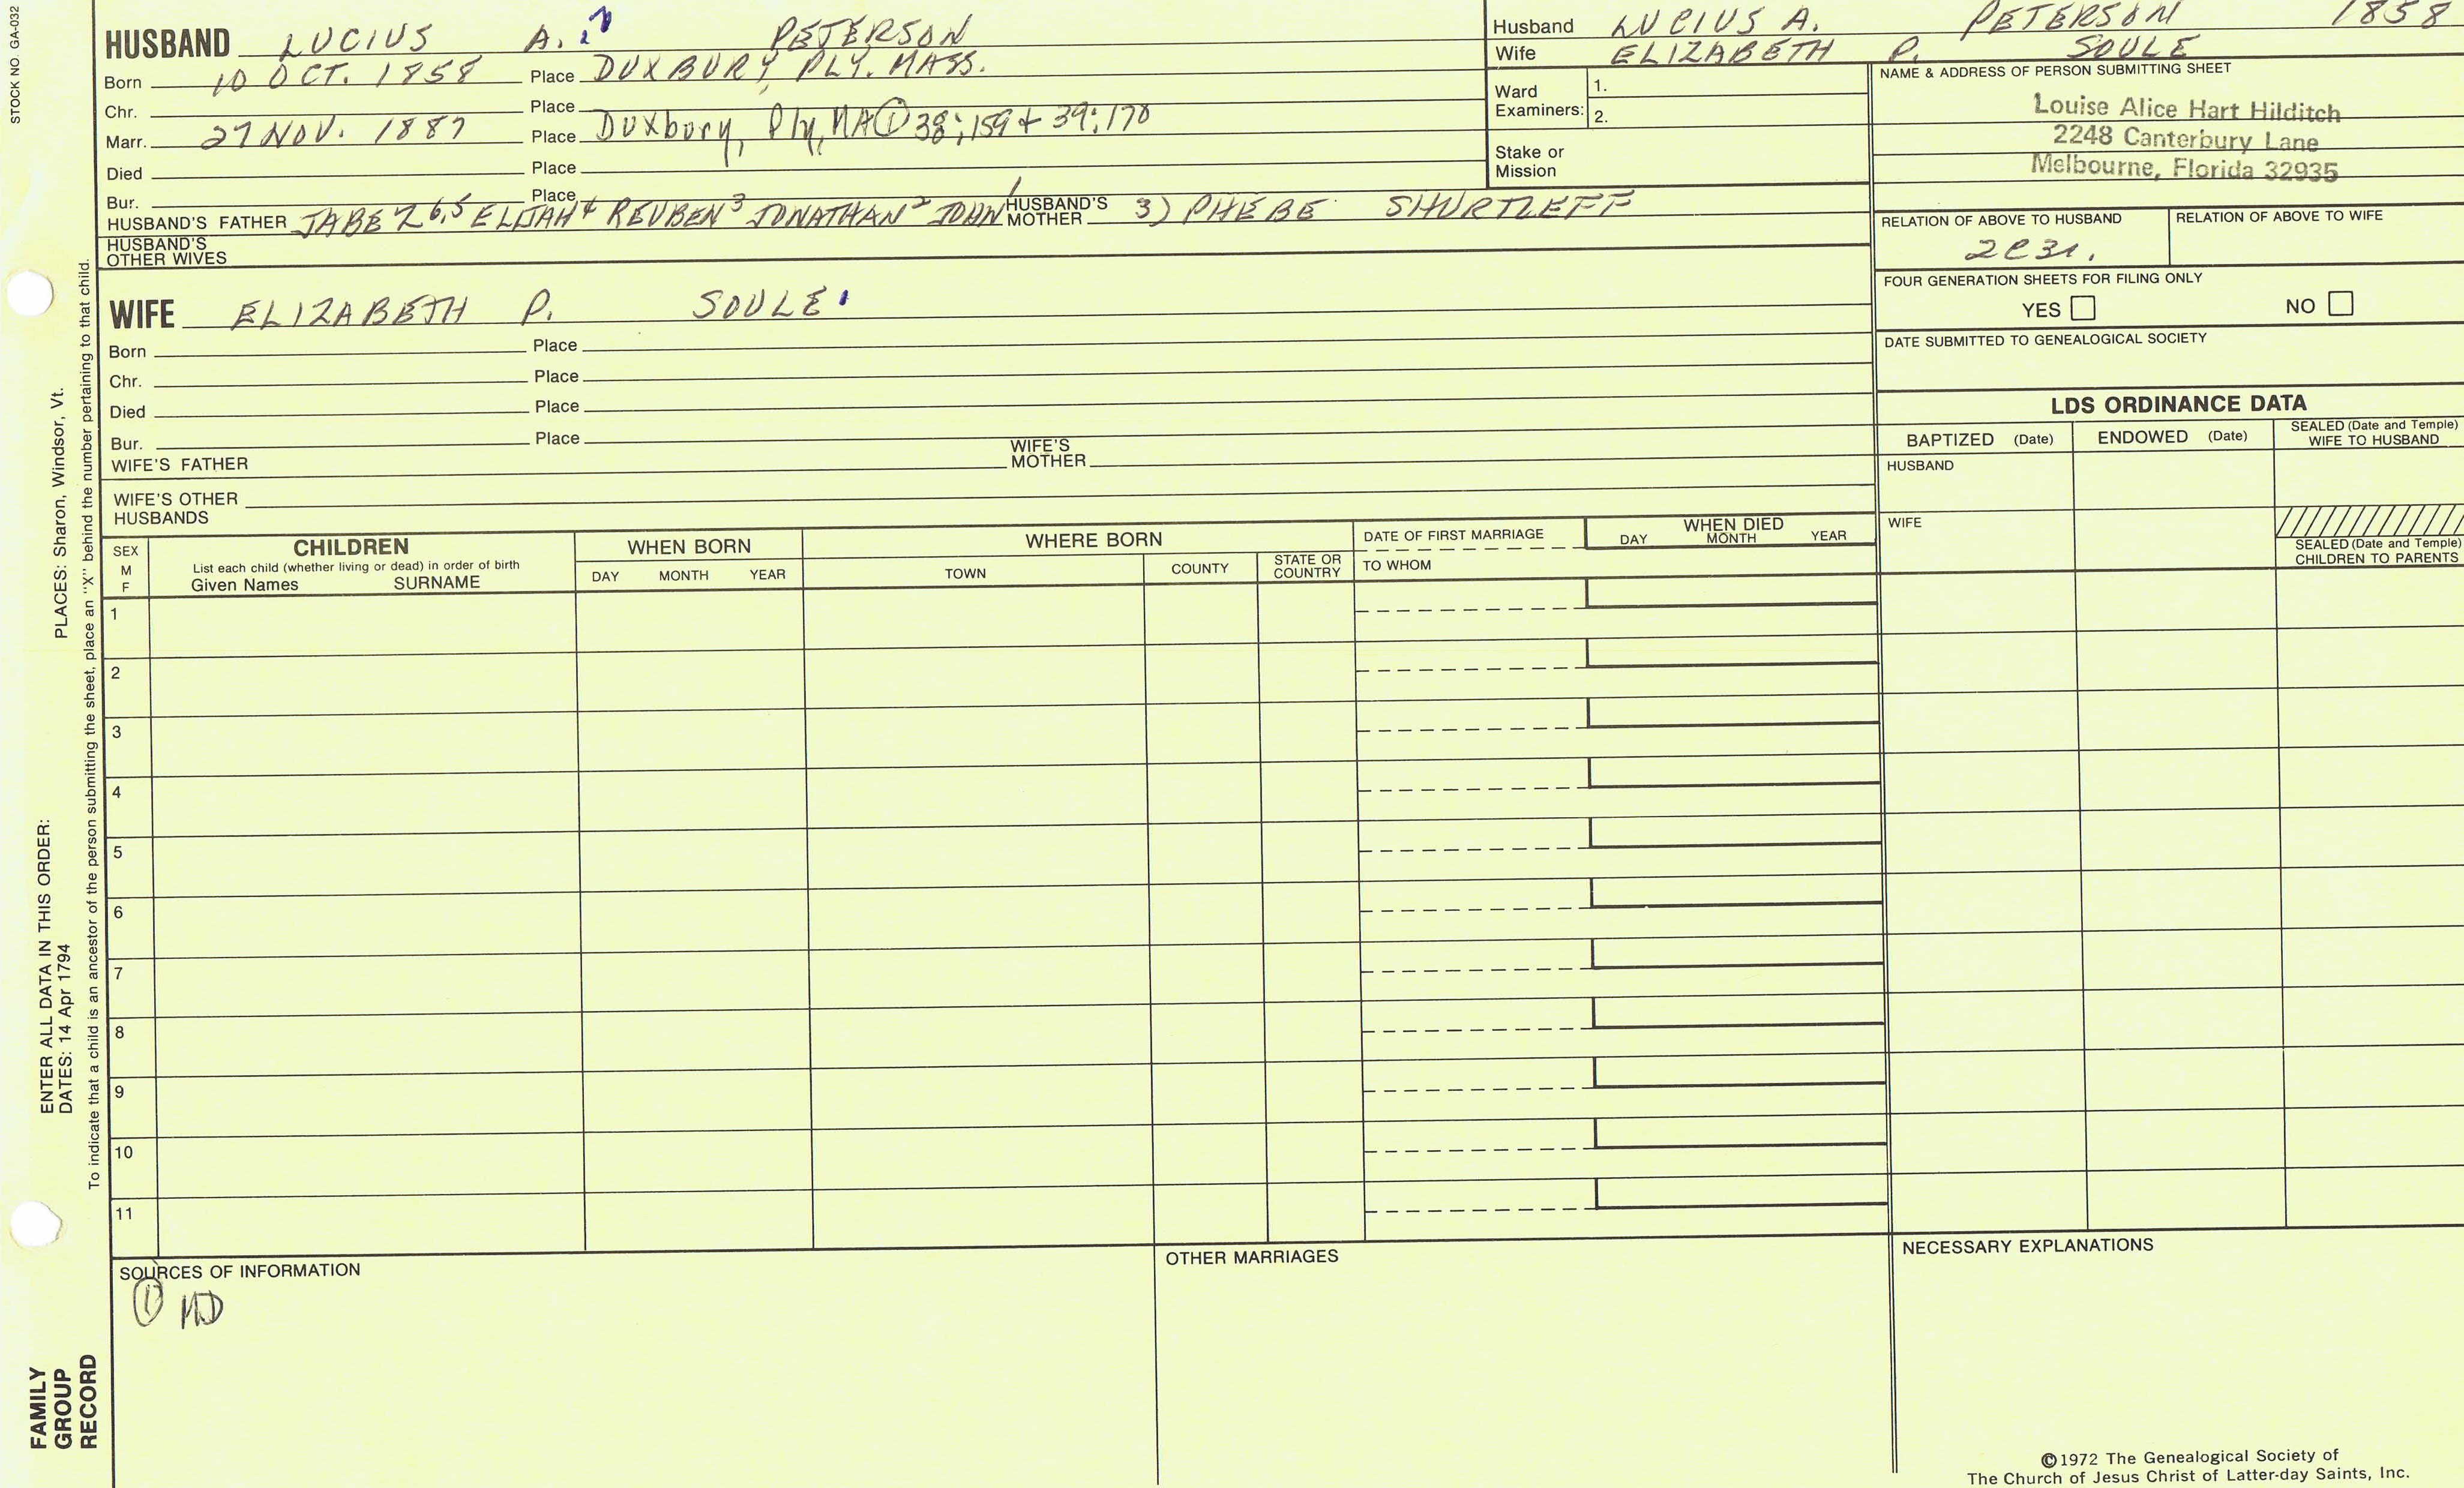 STOCK NO. GA-032
HUSBAND LUCIUS A. 7 PETERSON
Born 10 OCT. 1858 Place DUXBURY, PLY. MASS.
Chr. Place
Marr. 27 NOV. 1887 Place Duxbury, Ply, MA ① 38;159 + 39;170
Died Place
Bur. Place
HUSBAND'S FATHER JABEZ 6,5 ELIJAH 4 REUBEN 3 JONATHAN 2 JOHN 1 HUSBAND'S MOTHER 3) PHEBE SHURTLEFF
HUSBAND'S OTHER WIVES
WIFE ELIZABETH P. SOULE
Born Place
Chr. Place
Died Place
Bur. Place
WIFE'S FATHER WIFE'S MOTHER
WIFE'S OTHER HUSBANDS
Husband LUCIUS A. PETERSON 1858
Wife ELIZABETH P. SOULE
Ward Examiners: 1.
2.
Stake or Mission
NAME & ADDRESS OF PERSON SUBMITTING SHEET
Louise Alice Hart Hilditch
2248 Canterbury Lane
Melbourne, Florida 32935
RELATION OF ABOVE TO HUSBAND RELATION OF ABOVE TO WIFE
2C3r.
FOUR GENERATION SHEETS FOR FILING ONLY
YES NO
DATE SUBMITTED TO GENEALOGICAL SOCIETY
LDS ORDINANCE DATA
BAPTIZED (Date) ENDOWED (Date) SEALED (Date and Temple) WIFE TO HUSBAND
HUSBAND
WIFE
SEALED (Date and Temple) CHILDREN TO PARENTS
SEX M F
CHILDREN
List each child (whether living or dead) in order of birth
Given Names SURNAME
WHEN BORN
DAY MONTH YEAR
WHERE BORN
TOWN COUNTY STATE OR COUNTRY
DATE OF FIRST MARRIAGE
TO WHOM
WHEN DIED
DAY MONTH YEAR
1
2
3
4
5
6
7
8
9
10
11
SOURCES OF INFORMATION
① MD
OTHER MARRIAGES
NECESSARY EXPLANATIONS
©1972 The Genealogical Society of
The Church of Jesus Christ of Latter-day Saints, Inc.
PLACES: Sharon, Windsor, Vt.
ENTER ALL DATA IN THIS ORDER:
DATES: 14 Apr 1794
To indicate that a child is an ancestor of the person submitting the sheet, place an "X" behind the number pertaining to that child.
FAMILY
GROUP
RECORD